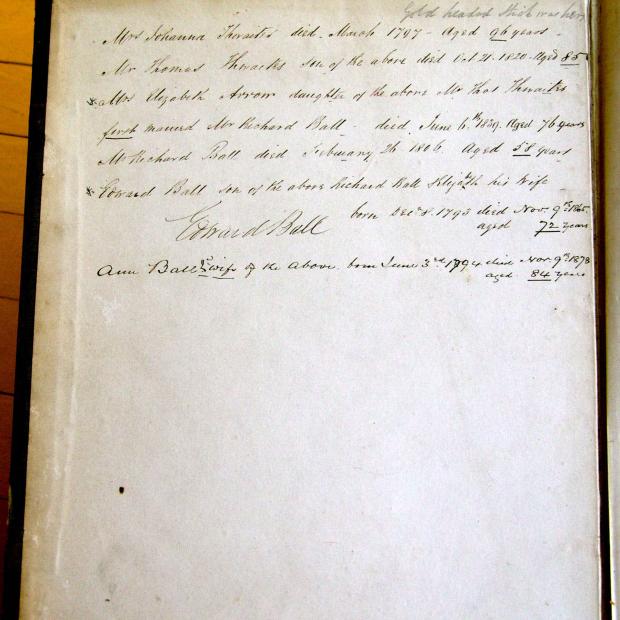 Gold headed stick was hers
Mrs Johanna Thwaites died March 1797 - Aged 96 years -
Mr Thomas Thwaites son of the above died Oct 21. 1820. Aged 85
* Mrs Elizabeth Arrow daughter of the above Mr Thos Thwaites
first married Mr Richard Ball - died June 6th 1839. Aged 76 years
Mr Richard Ball died February 26 1806. Aged 58 years
* Edward Ball son of the above Richard Ball & Elizabth his Wife
born Dec 8. 1793 died Nov. 9th 1865.
Edward Ball aged 72 years
Ann Ball wife of the above. born June 3rd 1794 died Nov. 9th 1878
aged 84 years